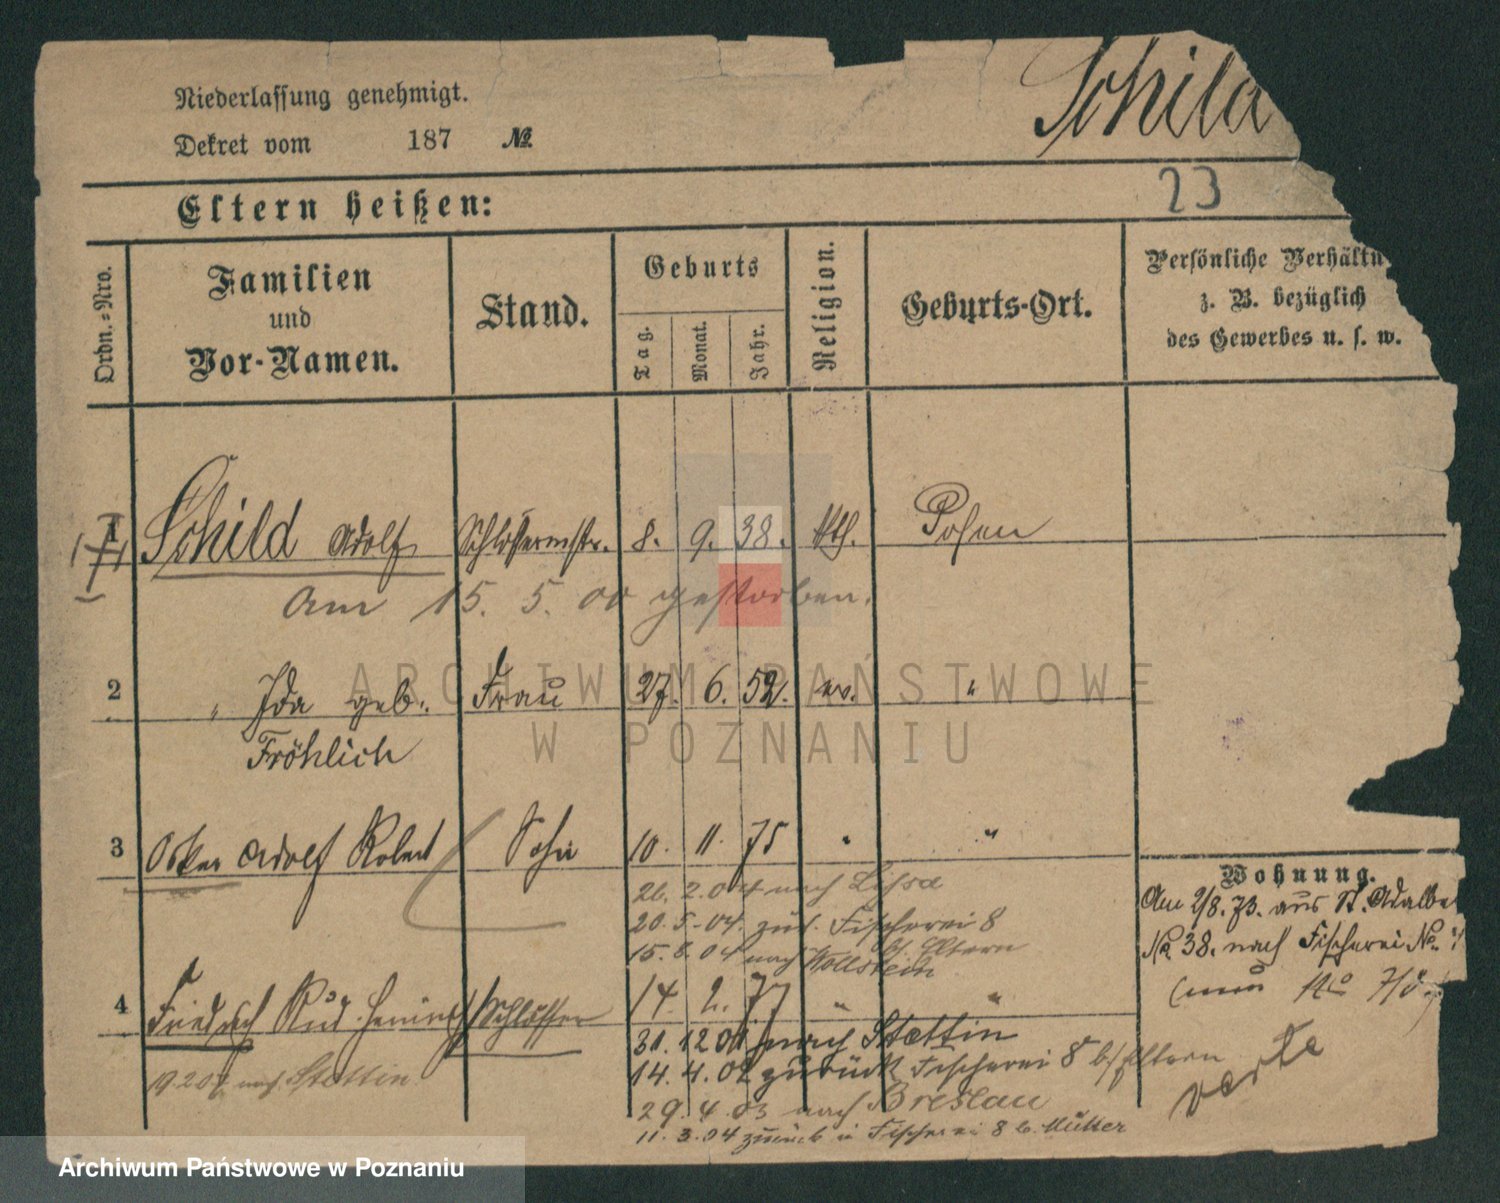 Niederlassung genehmigt.
Schild
Dekret vom 187 №
23
Eltern heißen:
Ordn.=Nro.
Familien
und
Vor-Namen.
Stand.
Geburts
Tag.
Monat.
Jahr.
Religion.
Geburts-Ort.
Persönliche Verhältn
z. B. bezüglich
des Gewerbes u. s. w.
1 Schild Adolf Schlossermstr. 8. 9. 38. kth. Posen
Am 15. 5. 00 gestorben.
2 " Ida geb. Frau 27. 6. 52. ev. "
Fröhlich
3 Oskar Adolf Robert Sohn 10. 11. 75 " "
26. 2. 04 nach Lissa
20. 5. 04. zur. Fischerei 8
b/ Eltern
15. 8. 04 nach Wollstein
4 Friedrich Rud. Heinrich Schlosser 14. 2. 77 " "
31. 12 01 nach Stettin
14. 4. 02 zurück Fischerei 8 b/ Eltern
nach Stettin
29. 4. 03 nach Breslau
11. 3. 04 zurück Fischerei 8 b. Mutter
Wohnung.
Am 2/8. 73. aus St. Adalbe
No 38. nach Fischerei No.
verte
ARCHIWUM PAŃSTWOWE
W POZNANIU
Archiwum Państwowe w Poznaniu